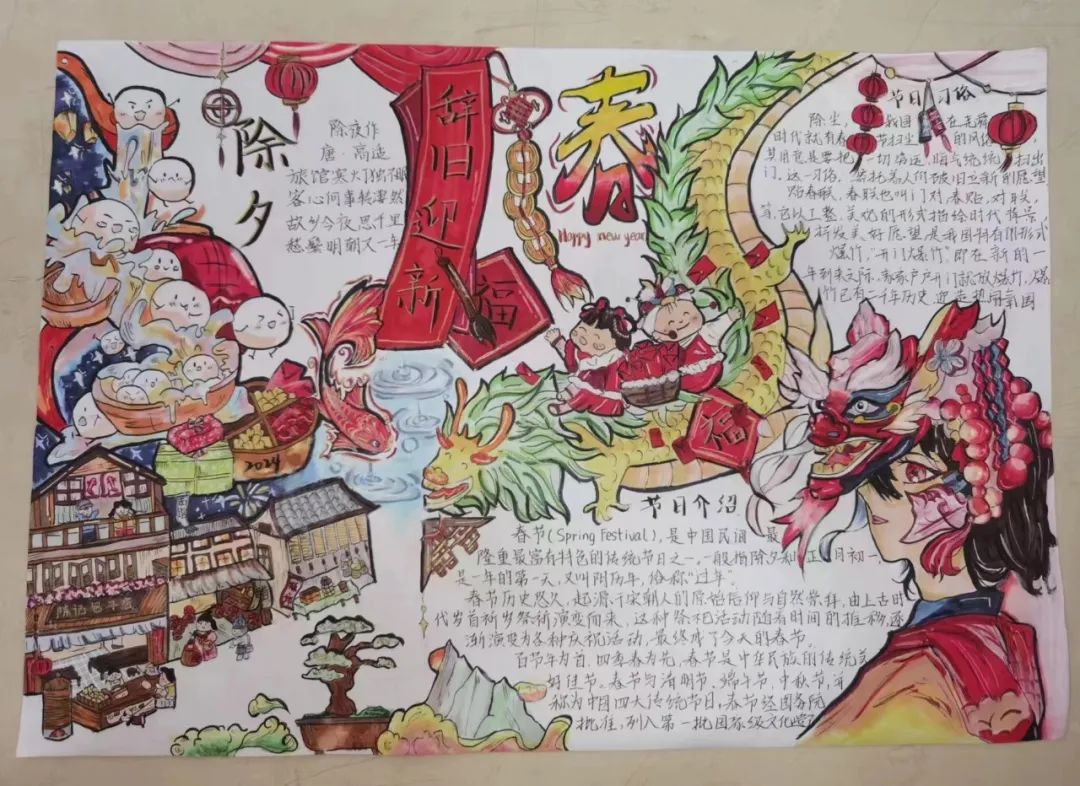 除夕
除夜作
唐·高适
旅馆寒灯独不眠
客心何事转凄然
故乡今夜思千里
愁鬓明朝又一年
辞旧迎新
福
春
Happy new year
节日习俗
除尘,我国在尧舜
时代就有春节扫尘的风俗
其用意是要把一切"晦气"统统扫出
门。这一习俗,寄托着人们破旧立新的愿望
贴春联、春联也叫门对、春贴、对联,
等,它以工整、美妙的形式描绘时代背景,
抒发美好愿望是我国特有的形式
爆竹,"开门爆竹"即在新的一
年到来之际,家家户户开门就放爆竹,爆
竹已有二千年历史,迎走热闹氛围
福
2024
节日介绍
春节(Spring Festival),是中国民间最
隆重最富有特色的传统节日之一,一般指除夕和正月初一
是一年的第一天,又叫阴历年,俗称"过年"。
春节历史悠久,起源于宋朝人的原始信仰与自然崇拜,由上古时
代岁首祈岁祭祈演变而来,这种祭祀活动随着时间的推移,逐
渐演变为各种庆祝活动,最终成了今天的春节。
百节年为首,四季春为先,春节是中华民族的传统美
好佳节。春节与清明节、端午节、中秋节,并
称为中国四大传统节日,春节经国务院
批准,列入第一批国家级文化遗